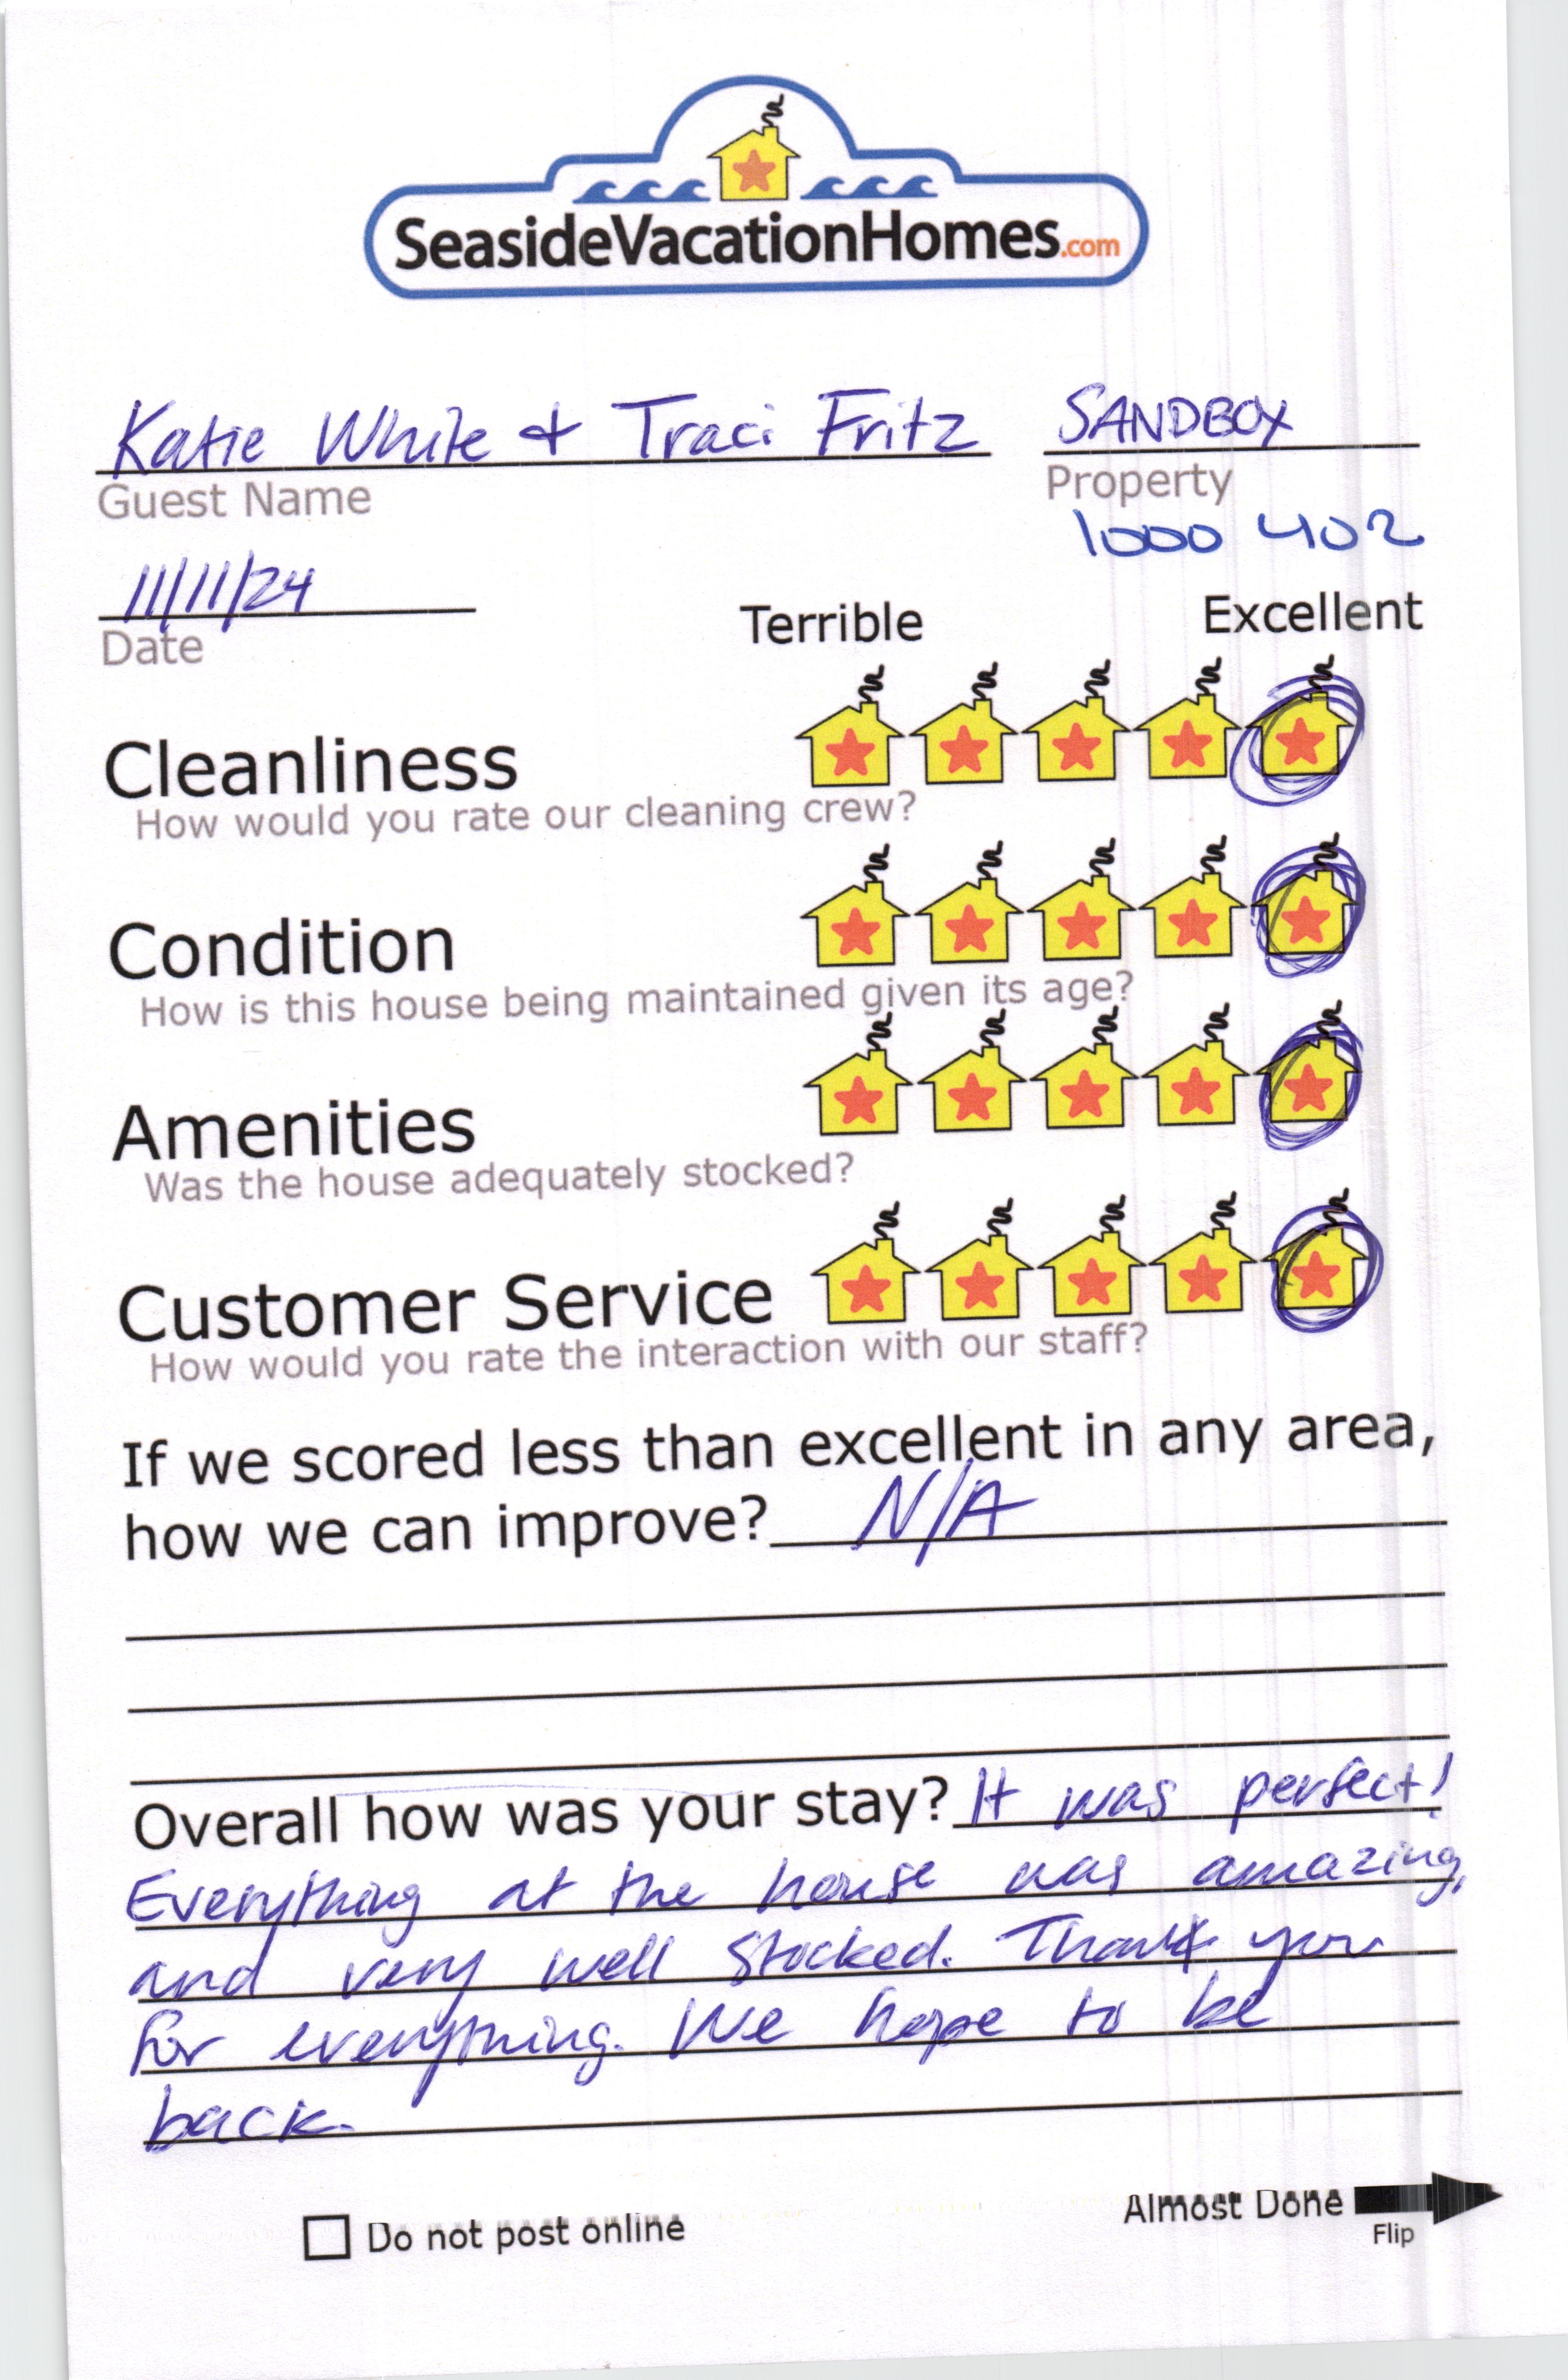 SeasideVacationHomes.com
Katie White & Traci Fritz SANDBOX
Guest Name Property
1000 402
11/11/24
Date
Terrible Excellent
Cleanliness
How would you rate our cleaning crew?
Condition
How is this house being maintained given its age?
Amenities
Was the house adequately stocked?
Customer Service
How would you rate the interaction with our staff?
If we scored less than excellent in any area,
how we can improve? N/A
Overall how was your stay? It was perfect!
Everything at the house was amazing,
and very well stocked. Thank you
for everything. We hope to be
back.
Do not post online
Almost Done
Flip